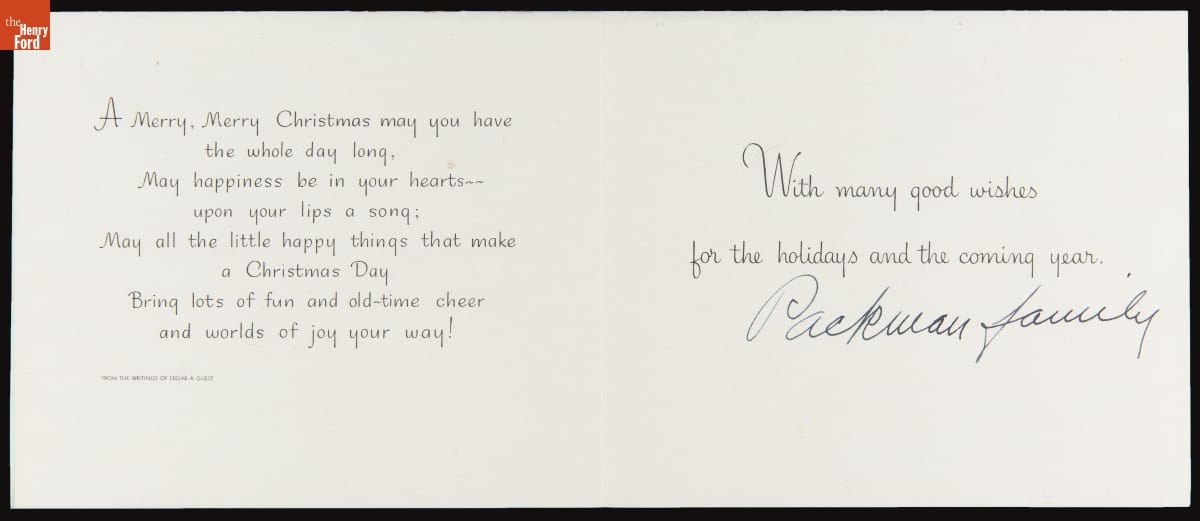 the
Henry
Ford
A Merry, Merry Christmas may you have
the whole day long,
May happiness be in your hearts~~
upon your lips a song;
May all the little happy things that make
a Christmas Day
Bring lots of fun and old-time cheer
and worlds of joy your way!
FROM THE WRITINGS OF EDGAR A GUEST
With many good wishes
for the holidays and the coming year.
Packman family